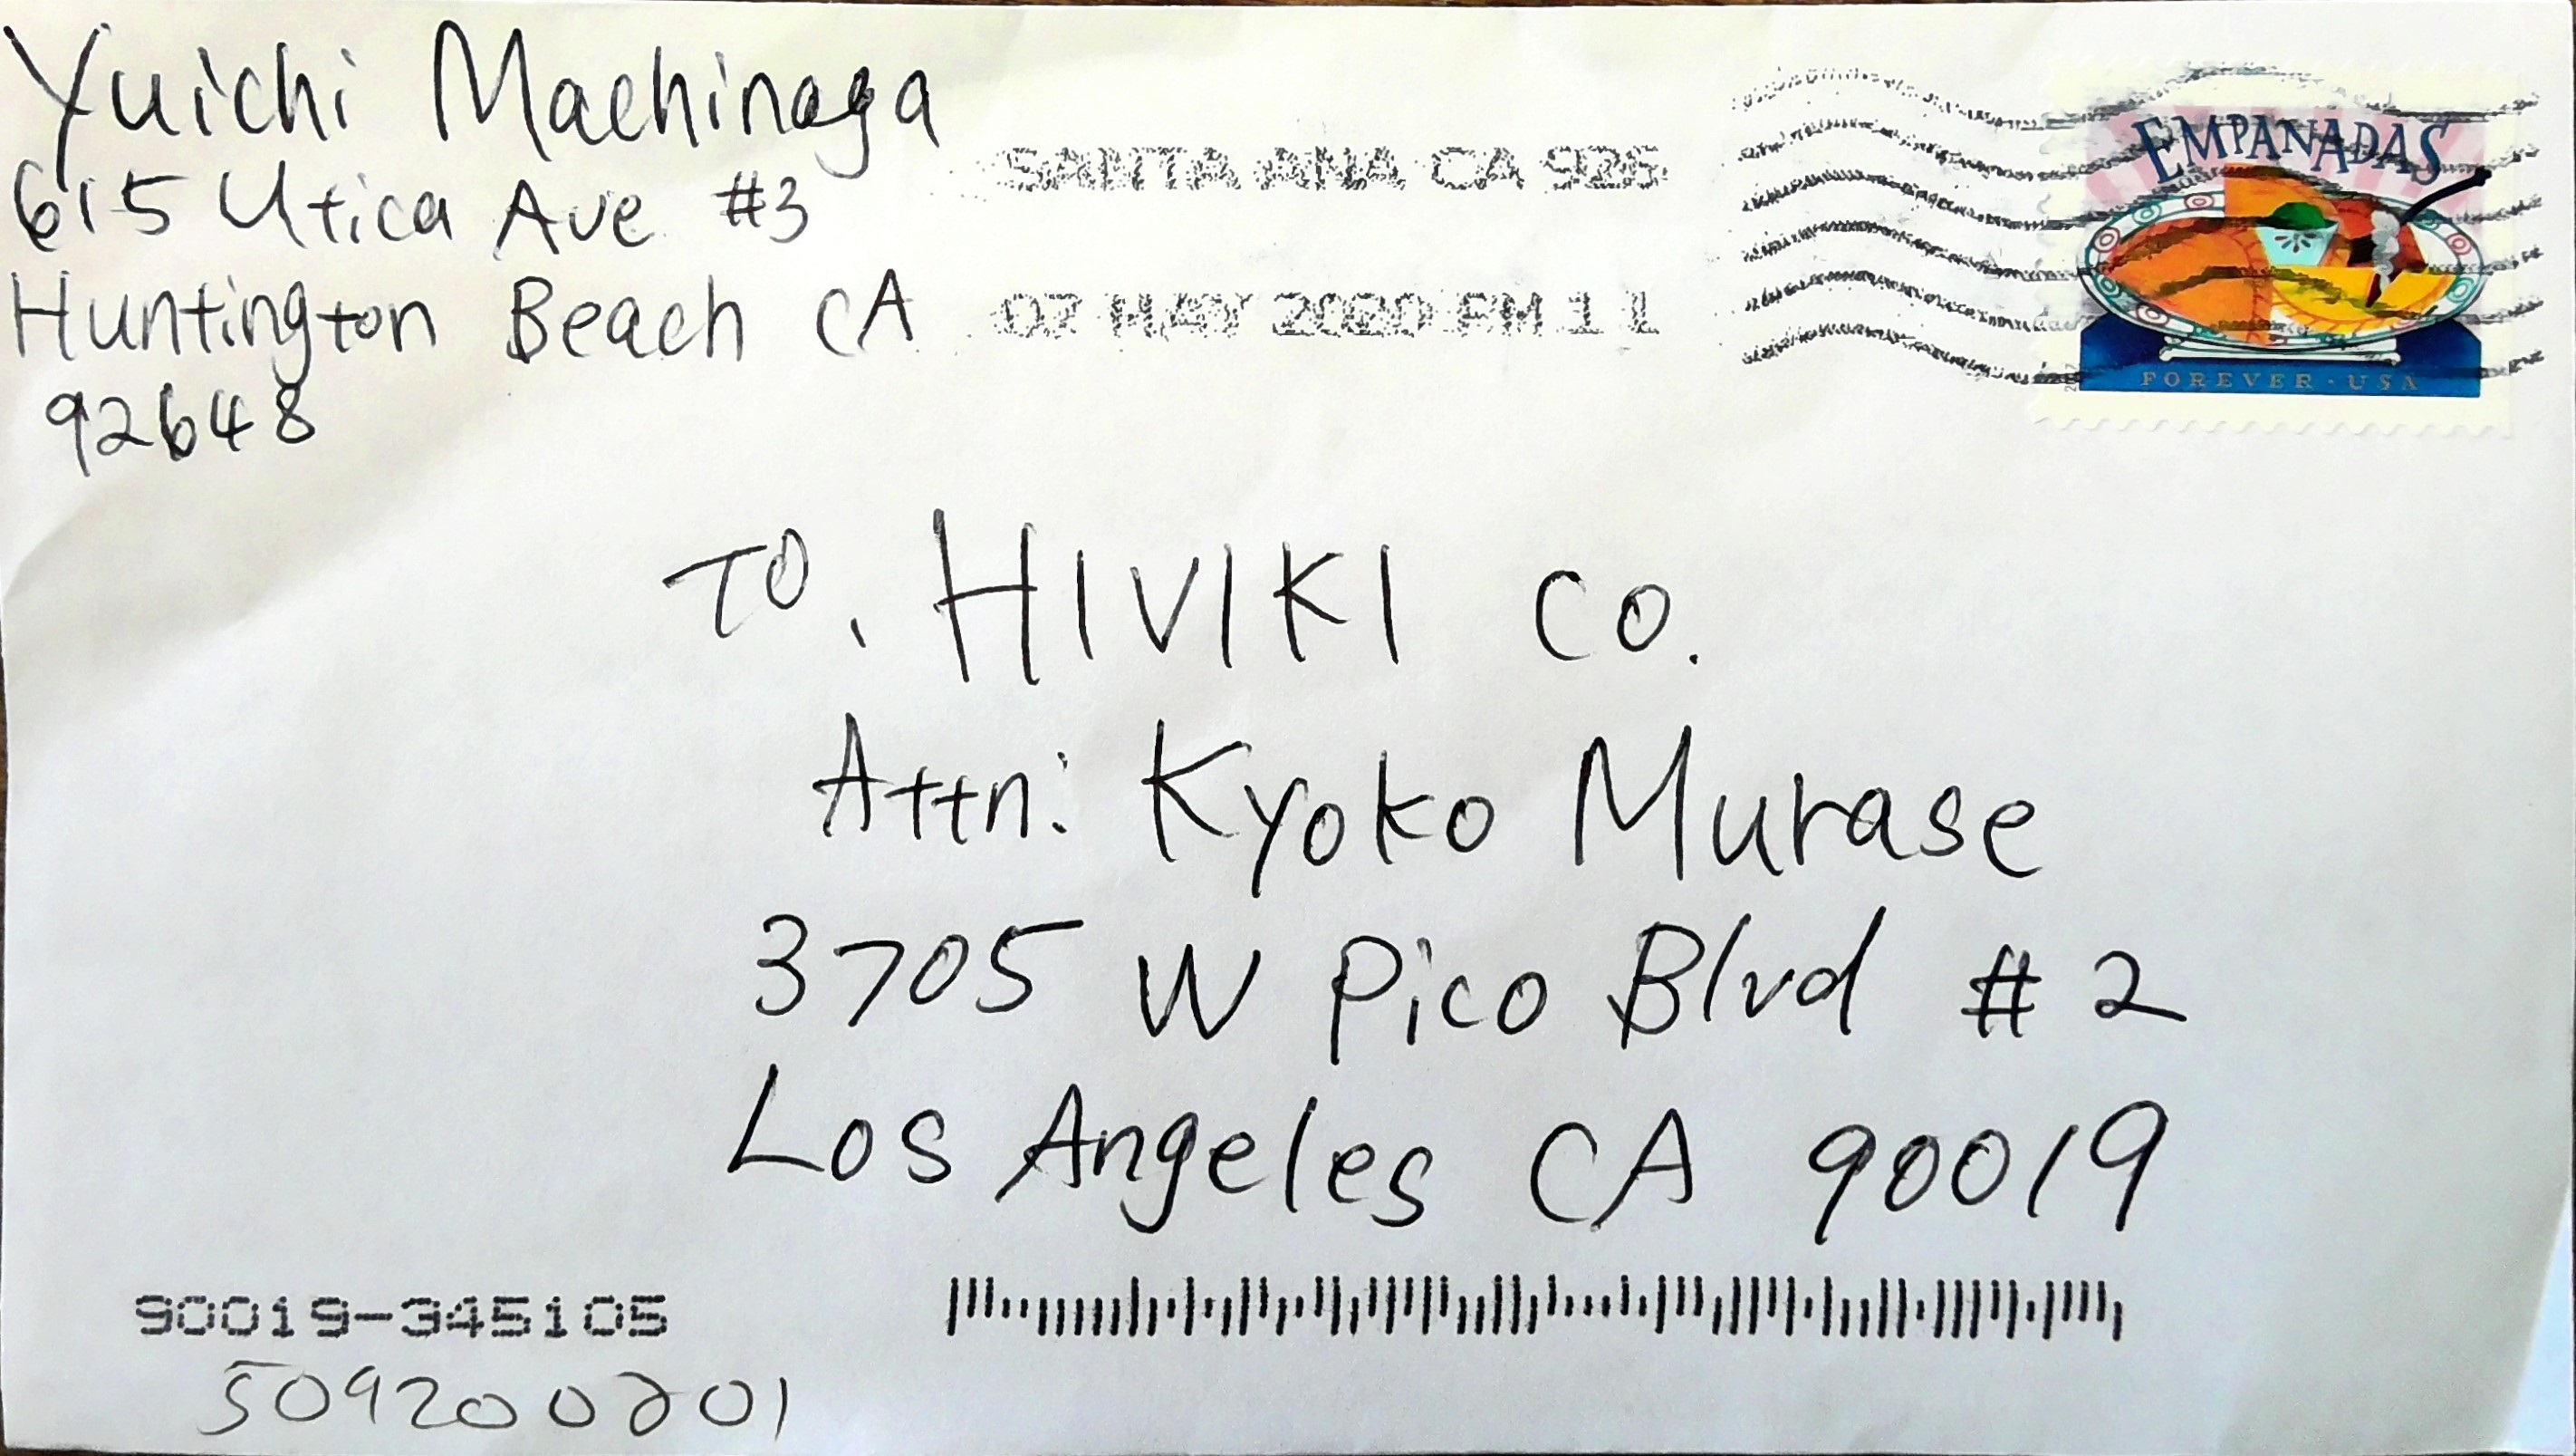 Yuichi Machinaga
615 Utica Ave #3
Huntington Beach CA
92648
SANTA ANA CA 926
07 MAY 2020 PM 1 L
EMPANADAS
FOREVER · USA
TO. HIVIKI CO.
Attn: Kyoko Murase
3705 W Pico Blvd # 2
Los Angeles CA 90019
90019-345105